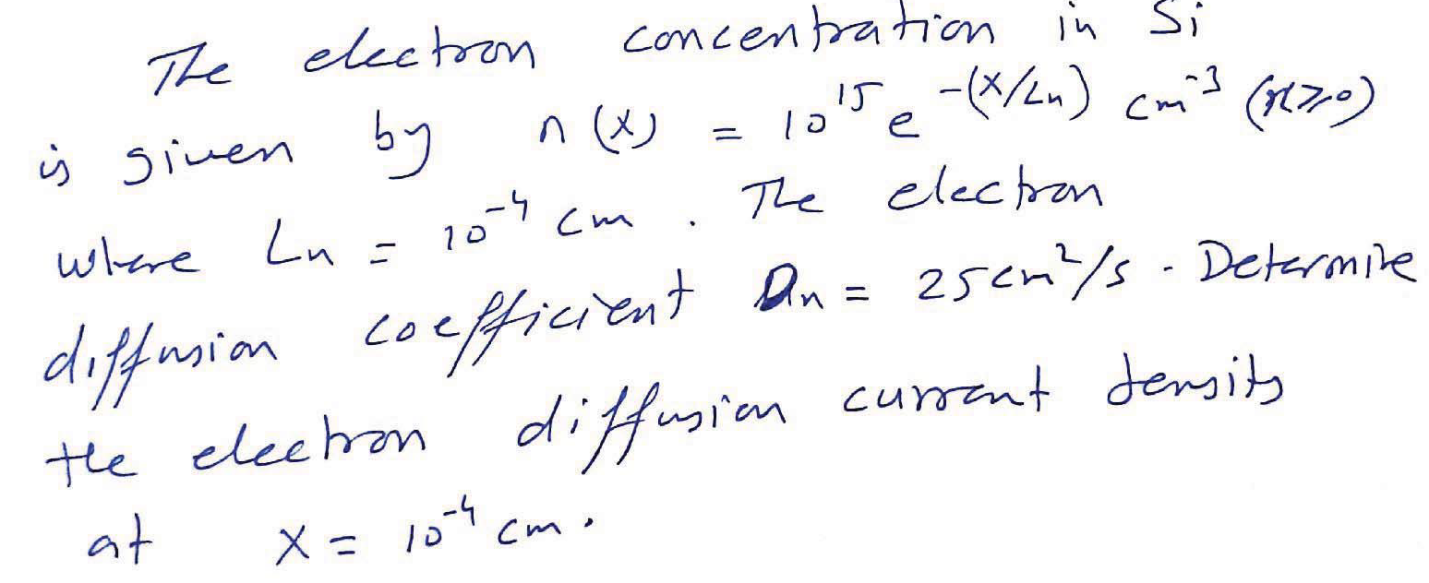 The electron concentration in Si
is given by n(x) = 10¹⁵ e^-(x/Ln) cm⁻³ (x≥0)
where Ln = 10⁻⁴ cm. The electron
diffusion coefficient Dn = 25cm²/s. Determine
the electron diffusion current density
at x = 10⁻⁴ cm.